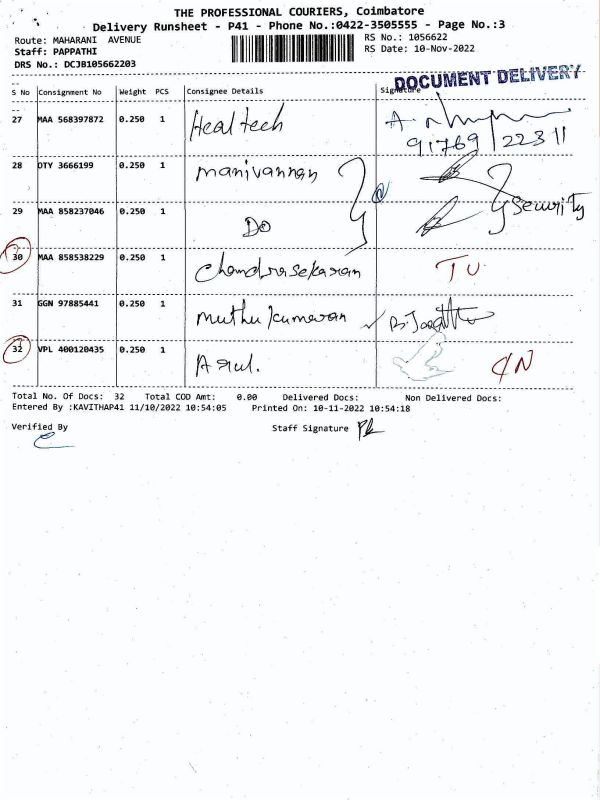 THE PROFESSIONAL COURIERS, Coimbatore
Delivery Runsheet - P41 - Phone No.:0422-3505555 - Page No.:3
Route: MAHARANI AVENUE
RS No.: 1056622
Staff: PAPPATHI
RS Date: 10-Nov-2022
DRS No.: DCJB105662203
DOCUMENT DELIVERY
S No Consignment No Weight PCS Consignee Details Signature
27 MAA 568397872 0.250 1 Healtech
91769/22311
28 DTY 3666199 0.250 1 Manivannan
29 MAA 858237046 0.250 1 Do Security
30 MAA 858538229 0.250 1 Chandrasekaran
31 GGN 97885441 0.250 1 Muthukumaran
32 VPL 400120435 0.250 1 Arul.
Total No. Of Docs: 32 Total COD Amt: 0.00 Delivered Docs: Non Delivered Docs:
Entered By :KAVITHAP41 11/10/2022 10:54:05 Printed On: 10-11-2022 10:54:18
Verified By Staff Signature